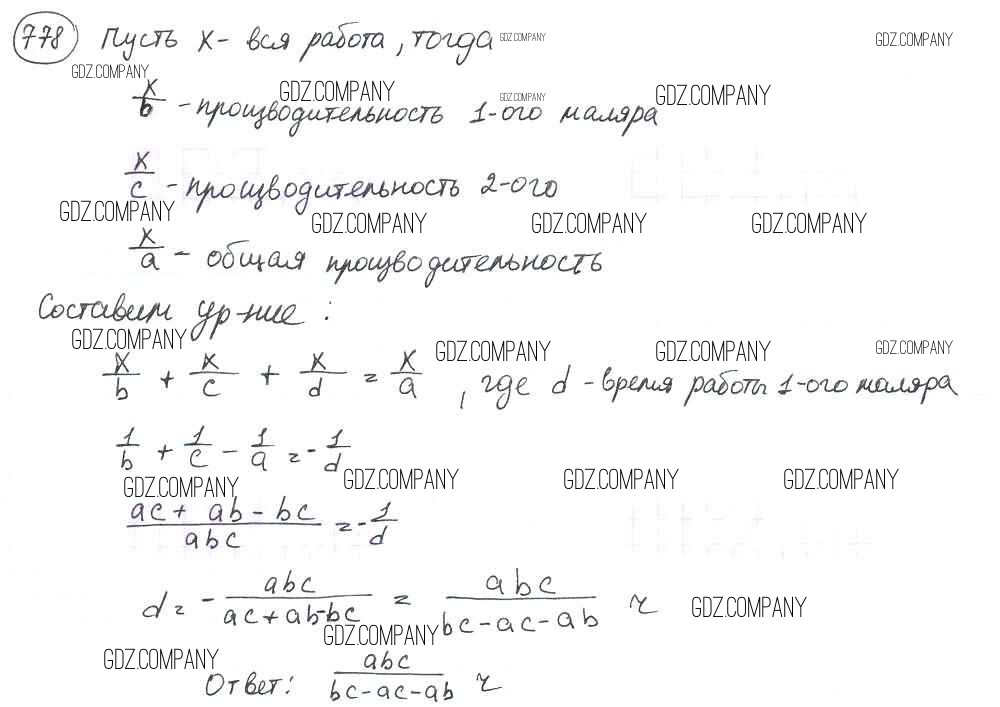 778 Пусть х - вся работа, тогда GDZ.COMPANY GDZ.COMPANY
GDZ.COMPANY
x/b - производительность 1-ого маляра GDZ.COMPANY GDZ.COMPANY GDZ.COMPANY
x/c - производительность 2-ого
GDZ.COMPANY GDZ.COMPANY GDZ.COMPANY GDZ.COMPANY
x/a - общая производительность
Составим ур-ние:
GDZ.COMPANY GDZ.COMPANY GDZ.COMPANY GDZ.COMPANY
x/b + x/c + x/d = x/a, где d - время работы 1-ого маляра
1/b + 1/c - 1/a = - 1/d
GDZ.COMPANY GDZ.COMPANY GDZ.COMPANY GDZ.COMPANY
(ac + ab - bc)/abc = - 1/d
d = - abc/(ac + ab - bc) = abc/(bc - ac - ab) ч GDZ.COMPANY
GDZ.COMPANY
GDZ.COMPANY
Ответ: abc/(bc - ac - ab) ч